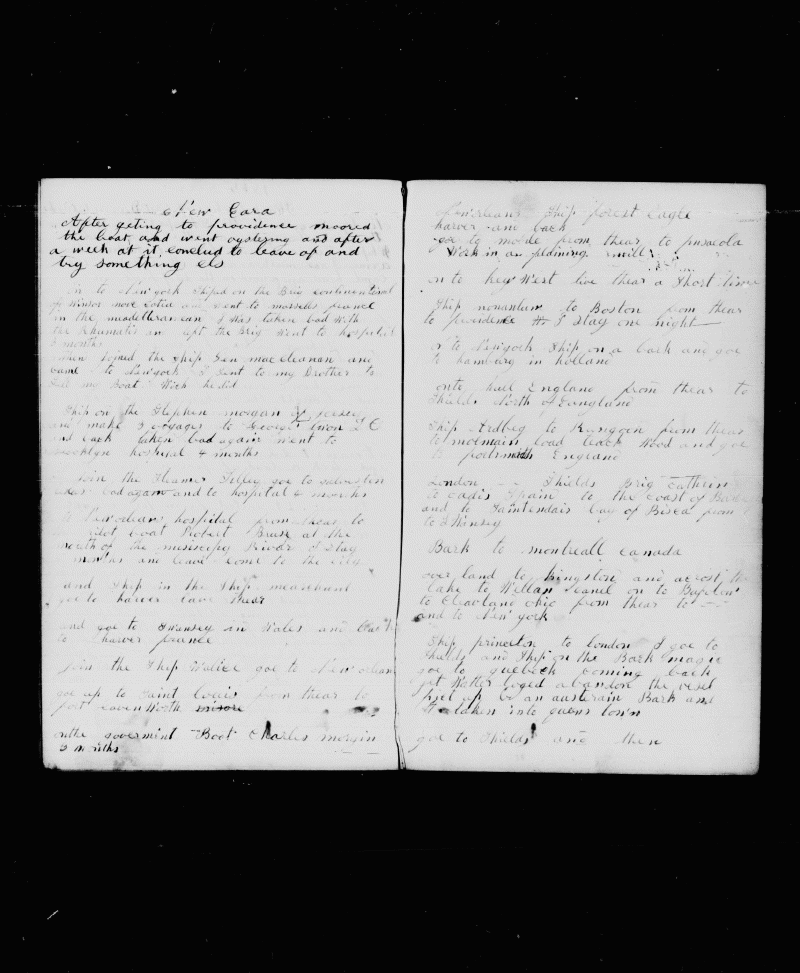 New Eara
After geting to providence moored
the boat and went oystering and after
a week at it, conclud to leave of and
try something els
on to New york Shiped on the Brig continental
of Winsor nove Cotia and Sent to
in the meodelteranean I was taken bad with
the Rhumatis in the Brig Went to hospitel
months
then Joined the Ship Gen mac cleanan and
came to Newyork I Sent to my Brother to
Sell my Boat Wich he did
Ship on the Stephen morgan of
and make 3 voyages to George
and back taken bad again went to
Brooklyn hospital 4 months
Join the Steamer goe to galvesten
bad again and to hospital 4 months
New orleans hospital from to
Boat Robert Bruse at the
mouth of the misisipy River I Stay
months and leave come to the city
and Ship in the Ship
goe to harver leave thear
and goe to Swansey in Wales and
to harver france
Join the Ship Wallice goe to New orleans
goe up to Saint Louis from thear to
fort leaven Worth
onthe goverment Boat Charles morgin
6 months
Neworleans Ship forest Eagle
harver and back
goe to mobile from thear to pensecola
Work in an plaining mill
on to key West live thear a Short time
Ship nonantum to Boston from thear
to providence I Stay one night
on to Newyork Ship on a bark and goe
to hamburg in holland
onto hull England from thear to
Shields North of Eangland
Ship Ardbeg to Rangoon from thear
to molmain load teack Wood and goe
to portsmith England
London Shields Brig Cathrin
to cadis Spain to the coast of
and to bay of Bisca from
to Swansey
Bark to montreall canada
over land to kingston and acrost the
lake to Wellan canel on to Bufelow
to Cleavland ohio from thear to
and to New york
Ship princeton to london I goe to
Shields and Ship on the Bark
goe to quebeck coming back
get Watter loged abandon the vesel
pict up by an austerian Bark and
taken into queens town
goe to Shields and then